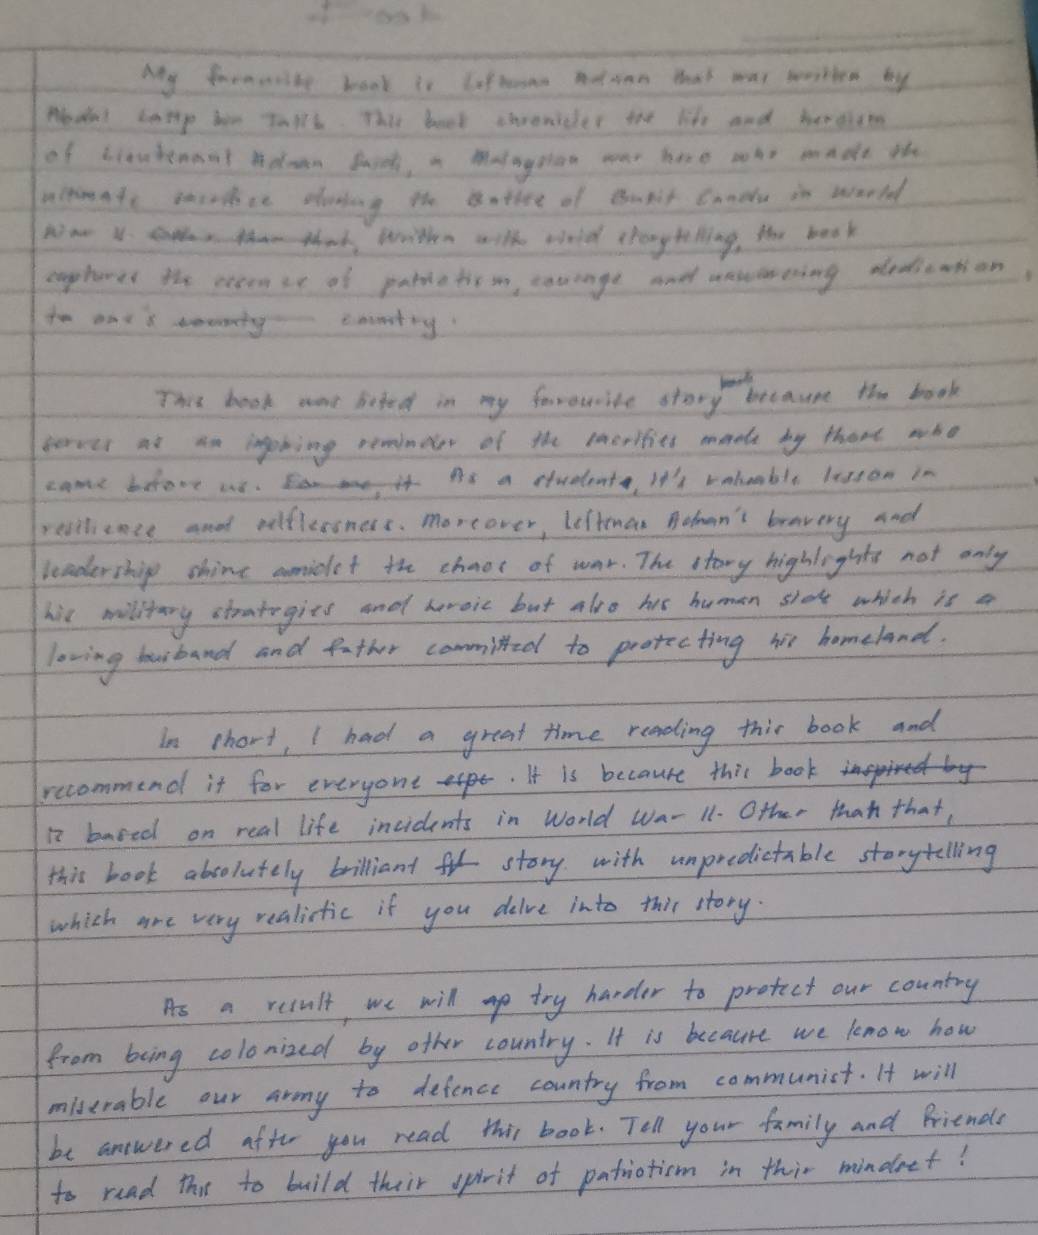 My favourite book is Leftenan Adnan that was written by
Abdul Latip bin Talib. This book chronicles the life and heroism
of Lieutenant Adnan Saidi, a Malaysian war hero who made the
ultimate sacrifice during the Battle of Bukit Candu in World
War II. Other than that, Written with vivid storytelling, the book
captures the essence of patriotism, courage and unwavering dedication
to one's country.
This book was listed in my favourite story book because the book
serves as an inspiring reminder of the sacrifies made by those who
came before us. For me, it As a student, it's valuable lesson in
resilience and selflessness. Moreover, Leftenan Adnan's bravery and
leadership shine amidst the chaos of war. The story highlights not only
his military strategies and heroic but also his human side which is a
loving husband and father committed to protecting his homeland.
In short, I had a great time reading this book and
recommend it for everyone espe. It is because this book inspired by
is based on real life incidents in World War II. Other than that,
this book absolutely brilliant story with unpredictable storytelling
which are very realistic if you delve into this story.
As a result, we will try harder to protect our country
from being colonized by other country. It is because we know how
miserable our army to defence country from communist. It will
be answered after you read this book. Tell your family and friends
to read this to build their spirit of patriotism in their mindset!